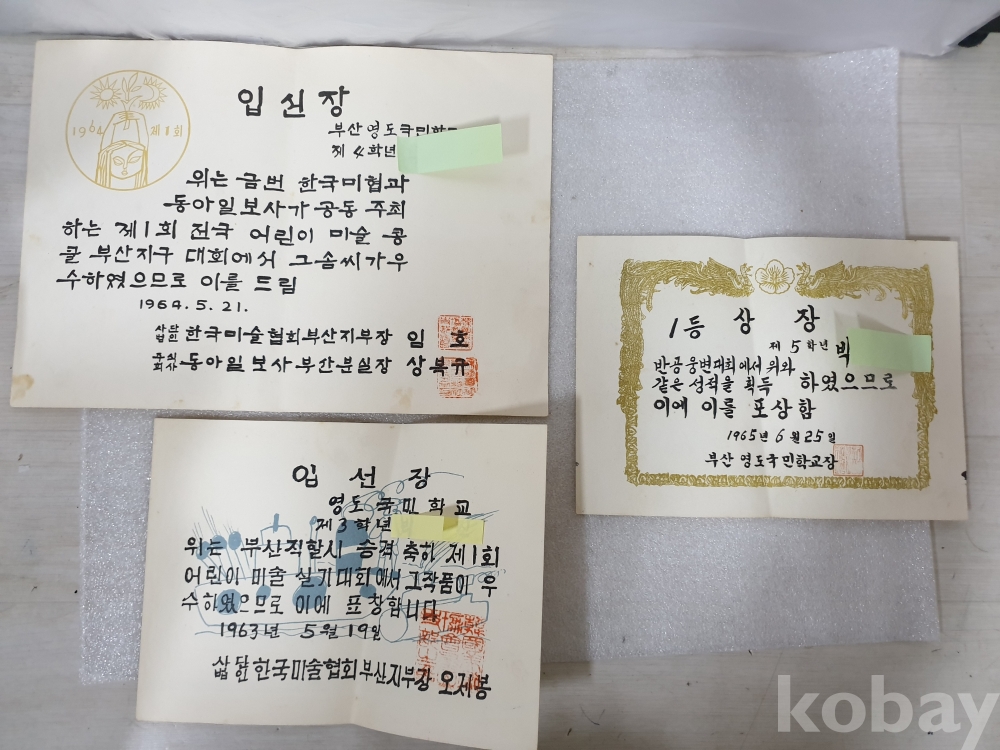 1964 제1회
입선장
부산영도국민학교
제4학년
위는 금번 한국미협과
동아일보사가 공동 주최
하는 제1회 전국 어린이 미술 콩
쿨 부산지구 대회에서 그솜씨가우
수하였으므로 이를 드림
1964. 5. 21.
사단법인 한국미술협회부산지부장 임 호
주식회사 동아일보사부산분실장 상북규
1등 상 장
제 5학년 박
반공웅변대회에서 위와
같은 성적을 획득 하였으므로
이에 이를 포상함
1965년 6월 25일
부산 영도국민학교장
입 선 장
영도국민학교
제3학년
위는 부산직할시 승격 축하 제1회
어린이 미술 실기대회에서 그작품이 우
수하였으므로 이에 표창합니다
1963년 5월 19일
사단법인 한국미술협회부산지부장 오제봉
kobay